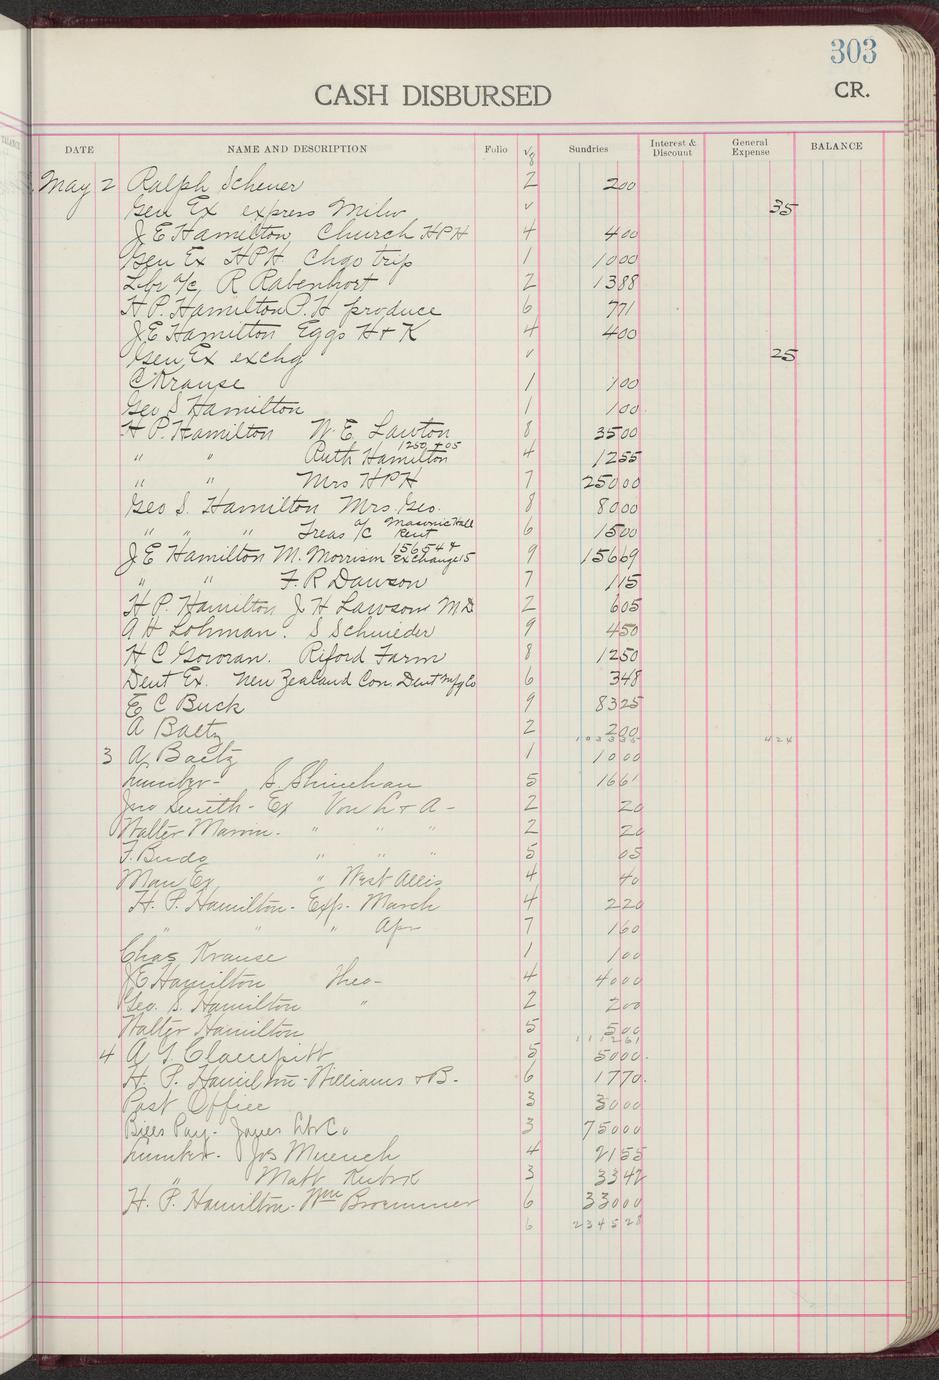 303
CASH DISBURSED CR.
DATE NAME AND DESCRIPTION Folio √ 8 Sundries Interest & Discount General Expense BALANCE
May 2 Ralph Scheuer 2 200
Gen Ex express Milw √ 35
J E Hamilton Church HPH 4 400
Gen Ex HPH Chgo trip 1 1000
Lbr a/c R Rabenhorst 2 1388
H P. Hamilton P. H produce 6 771
J E Hamilton Eggs H + K 4 400
Gen Ex exchg √ 25
C Krause 1 100
Geo S Hamilton 1 100
H P. Hamilton W. E. Lawton 8 3500
" " Ruth Hamilton 1250 + 05 4 1255
" " Mrs HPH 7 25000
Geo S. Hamilton Mrs. Geo. 8 8000
" " " Treas a/c Masonic Hall Rent 6 1500
J E Hamilton M. Morrison 15654 + Exchange 15 9 15669
" " F. R Dawson 7 115
H P. Hamilton J H Lawson M D 2 605
A H Lohman. S Schnieder 9 450
H C Govoran. Riford Farm 8 1250
Dent Ex. New Zealand Con Dent Mfg Co 6 348
E C Buck 9 8325
A Baetz 2 200
424
3 A Baetz 1 1000
Lumber - S Shinehan 5 1661
Jno Smith - Ex Von L + A - 2 20
Walter Mann - " " " 2 20
F. Budo " " " 5 05
Man Ex " West Allis 4 40
H. P. Hamilton - Exp. March 4 220
" " " Apr 7 160
Chas Krause 1 100
J E Hamilton Theo - 4 4000
Geo. S. Hamilton " 2 200
Walter Hamilton 5 500
111261
4 A G Clampitt 5 5000
H. P. Hamilton - Williams + B - 6 1770
Post Office 3 3000
Bills Pay - Jones Lbr Co 3 75000
Lumber - Jos Muench 4 2155
" Matt Kubsk 3 3342
H. P. Hamilton - Wm Broemmer 6 33000
6 234528